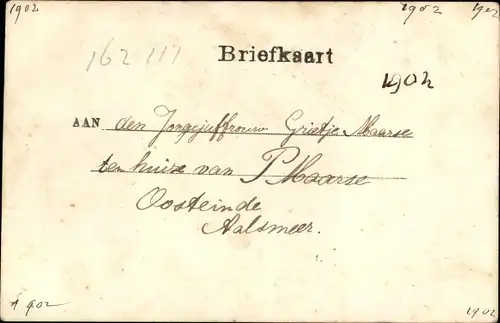 1902
1902
1902
162111
Briefkaart
1902
AAN den Jongejuffrouw Grietje Maarse
ten huize van P Maarse
Oosteinde
Aalsmeer.
1902
1902